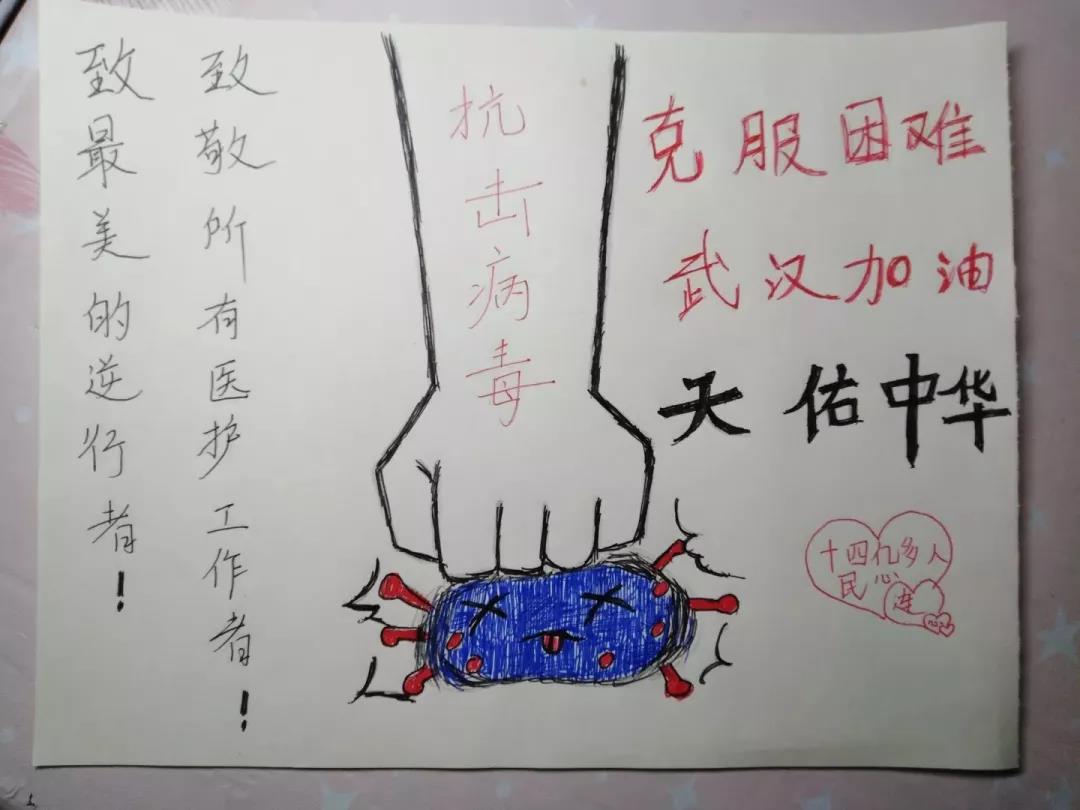 致最美的逆行者！
致敬所有医护工作者！
抗击病毒
克服困难
武汉加油
天佑中华
十四亿多人
民心
连